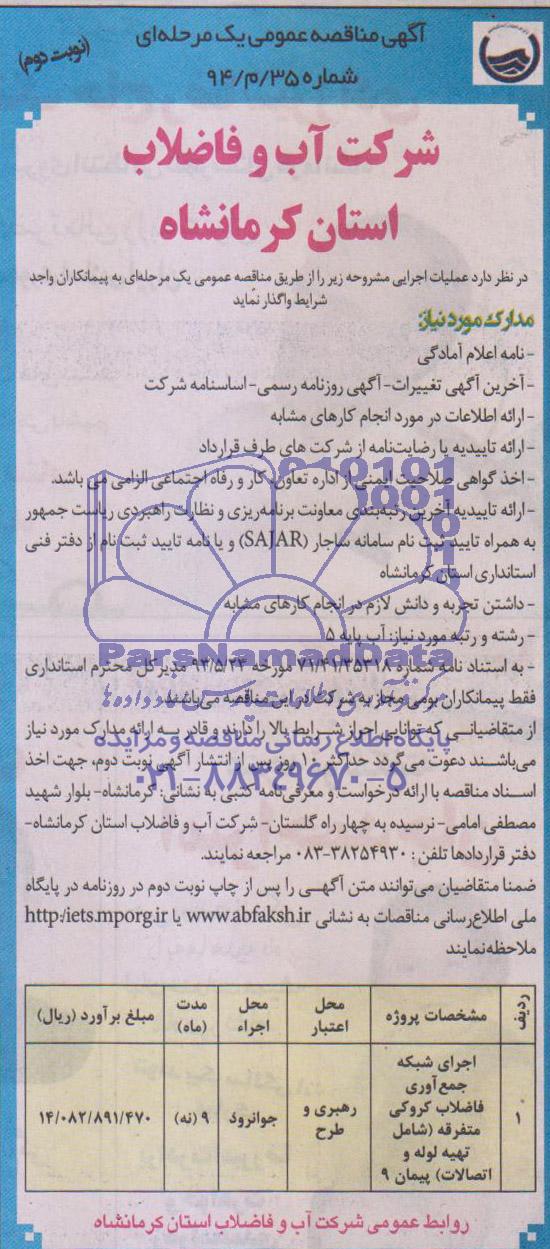 آگهی مناقصه عمومی یک مرحله‌ای
شماره ۳۵/م/۹۴
(نوبت دوم)
شرکت آب و فاضلاب
استان کرمانشاه
در نظر دارد عملیات اجرایی مشروحه زیر را از طریق مناقصه عمومی یک مرحله‌ای به پیمانکاران واجد
شرایط واگذار نماید
مدارک مورد نیاز:
- نامه اعلام آمادگی
- آخرین آگهی تغییرات- آگهی روزنامه رسمی- اساسنامه شرکت
- ارائه اطلاعات در مورد انجام کارهای مشابه
- ارائه تاییدیه یا رضایت‌نامه از شرکت های طرف قرارداد
- اخذ گواهی صلاحیت ایمنی از اداره تعاون، کار و رفاه اجتماعی الزامی می باشد.
- ارائه تاییدیه آخرین رتبه‌بندی معاونت برنامه‌ریزی و نظارت راهبردی ریاست جمهور
به همراه تایید ثبت نام سامانه ساجار (SAJAR) و یا نامه تایید ثبت نام از دفتر فنی
استانداری استان کرمانشاه
- داشتن تجربه و دانش لازم در انجام کارهای مشابه
- رشته و رتبه مورد نیاز: آب پایه ۵
- به استناد نامه شماره ۷۱/۴۱/۳۵۳۱۸ مورخه ۹۳/۵/۲۳ مدیرکل محترم استانداری
فقط پیمانکاران بومی مجاز به شرکت در این مناقصه می‌باشند.
از متقاضیانی که توانایی احراز شرایط بالا را دارند و قادر به ارائه مدارک مورد نیاز
می‌باشند دعوت می‌گردد حداکثر ۱۰ روز پس از انتشار آگهی نوبت دوم، جهت اخذ
اسناد مناقصه با ارائه درخواست و معرفی‌نامه کتبی به نشانی: کرمانشاه- بلوار شهید
مصطفی امامی- نرسیده به چهار راه گلستان- شرکت آب و فاضلاب استان کرمانشاه-
دفتر قراردادها تلفن : ۳۸۲۵۴۹۳۰-۰۸۳ مراجعه نمایند.
ضمنا متقاضیان می‌توانند متن آگهی را پس از چاپ نوبت دوم در روزنامه در پایگاه
ملی اطلاع‌رسانی مناقصات به نشانی www.abfaksh.ir یا http:/iets.mporg.ir
ملاحظه‌نمایند
ParsNamadData
پایگاه اطلاع رسانی مناقصه و مزایده
۰۲۱-۸۸۳۴۹۶۷۰-۵
ردیف مشخصات پروژه محل اعتبار محل اجراء مدت (ماه) مبلغ برآورد (ریال)
۱ اجرای شبکه جمع‌آوری فاضلاب کروکی متفرقه (شامل تهیه لوله و اتصالات) پیمان ۹ رهبری و طرح جوانرود ۹ (نه) ۱۴/۰۸۲/۸۹۱/۴۷۰
روابط عمومی شرکت آب و فاضلاب استان کرمانشاه